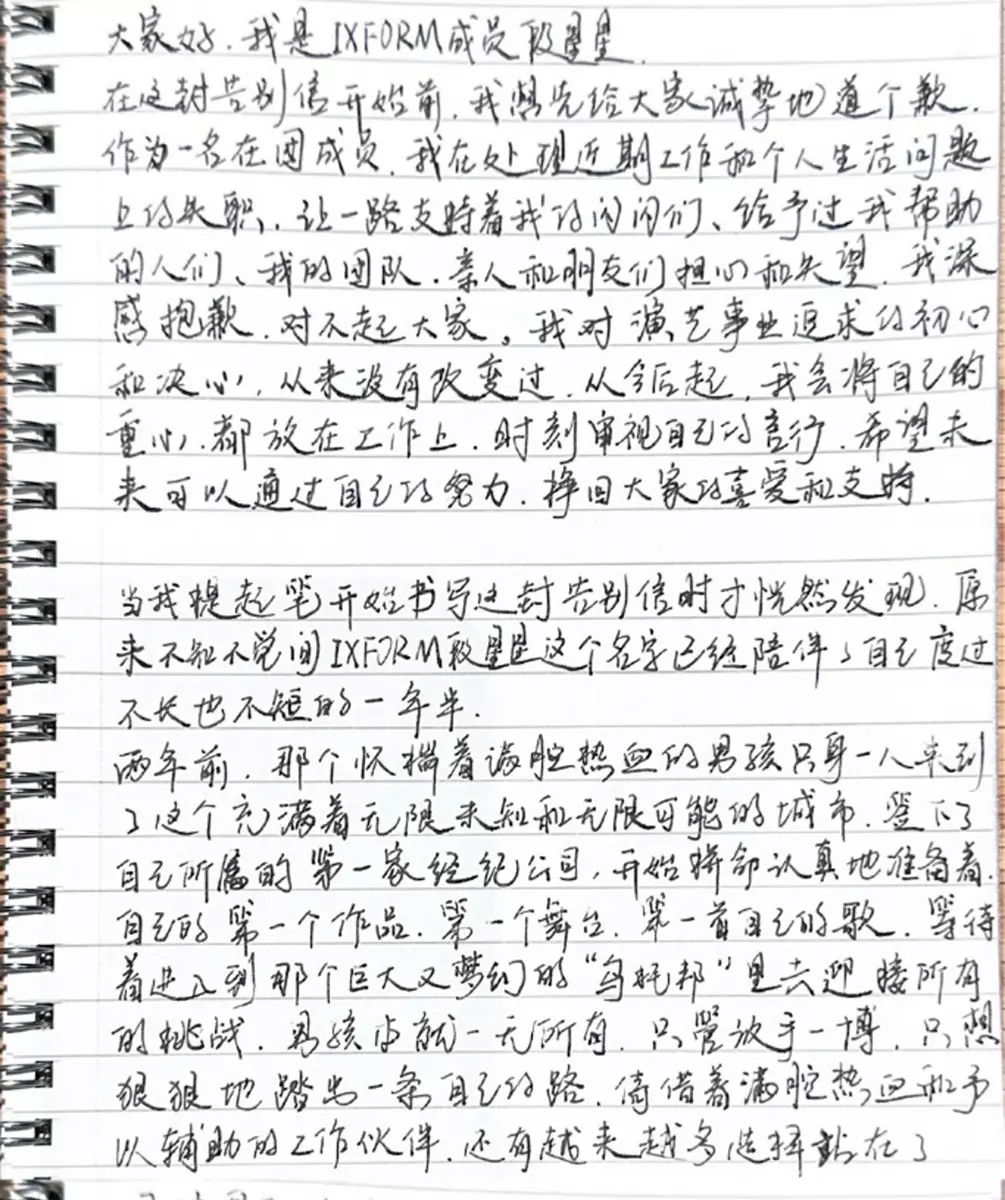 大家好.我是IXFORM成员段星星.
在这封告别信开始前.我想先给大家诚挚地道个歉.
作为一名在团成员.我在处理近期工作和个人生活问题
上的失职、让一路支持着我的闪闪们、给予过我帮助
的人们、我的团队.亲人和朋友们担心和失望.我深
感抱歉.对不起大家。我对演艺事业追求的初心
和决心,从来没有改变过.从今后起,我会将自己的
重心.都放在工作上.时刻审视自己的言行.希望未
来可以通过自己的努力.挣回大家的喜爱和支持.
当我提起笔开始书写这封告别信时才恍然发现.原
来不知不觉间IXFORM段星星这个名字已经陪伴了自己度过
不长也不短的一年半.
两年前.那个怀揣着满腔热血的男孩只身一人来到
了这个充满着无限未知和无限可能的城市.签下了
自己所属的第一家经纪公司,开始拼命认真地准备着.
自己的第一个作品.第一个舞台.第一首自己的歌.等待
着进入到那个巨大又梦幻的“乌托邦”里去迎接所有
的挑战.男孩本就一无所有.只管放手一博.只想
狠狠地踏出一条自己的路.倚借着满腔热血和予
以辅助的工作伙伴.还有越来越多选择站在了